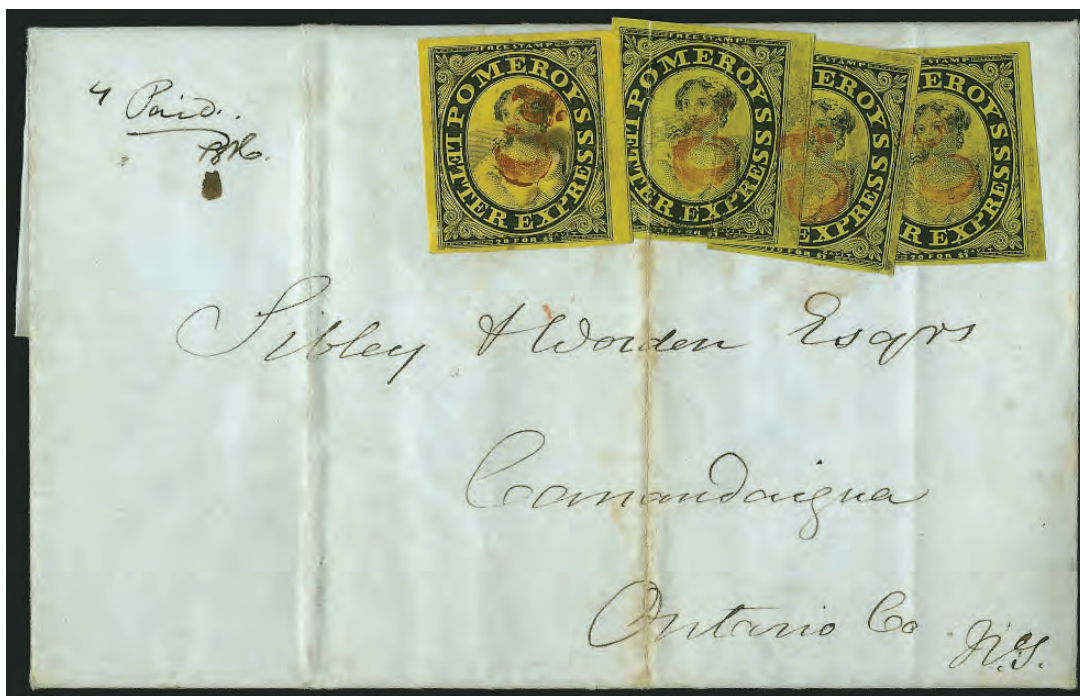 4 Paid.
FREE STAMP
POMEROYS
LETTER EXPRESS
20 FOR $1
FREE STAMP
POMEROYS
LETTER EXPRESS
20 FOR $1
FREE STAMP
MEROYS
EXPRESS
20 FOR $1
FREE STAMP
EROYS
R EXPRESS
20 FOR $1
Sibley & Worden Esqrs
Canandaigua
Ontario Co
N.Y.